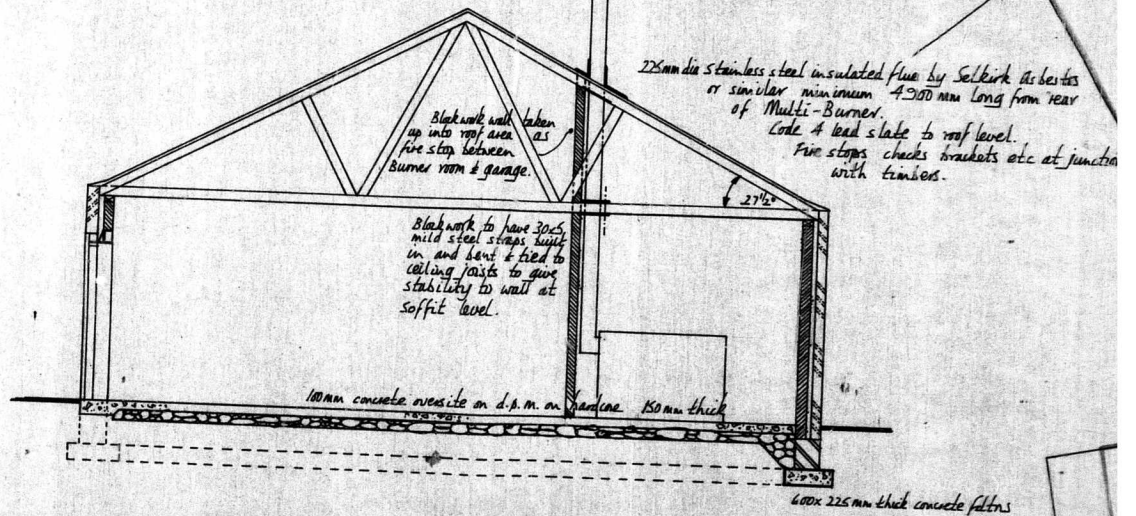 225mm dia stainless steel insulated flue by Selkirk Asbestos
or similar minimum 4900 mm long from rear
of Multi-Burner.
Code 4 lead slate to roof level.
Fire stops checks brackets etc at junction
with timbers.
Blockwork wall taken
up into roof area as
fire stop between
Burner room & garage.
27½°
Blockwork to have 30x5
mild steel straps built
in and bent & tied to
ceiling joists to give
stability to wall at
soffit level.
100mm concrete oversite on d.p.m. on hardcore 150mm thick
600x225mm thick concrete fdtns